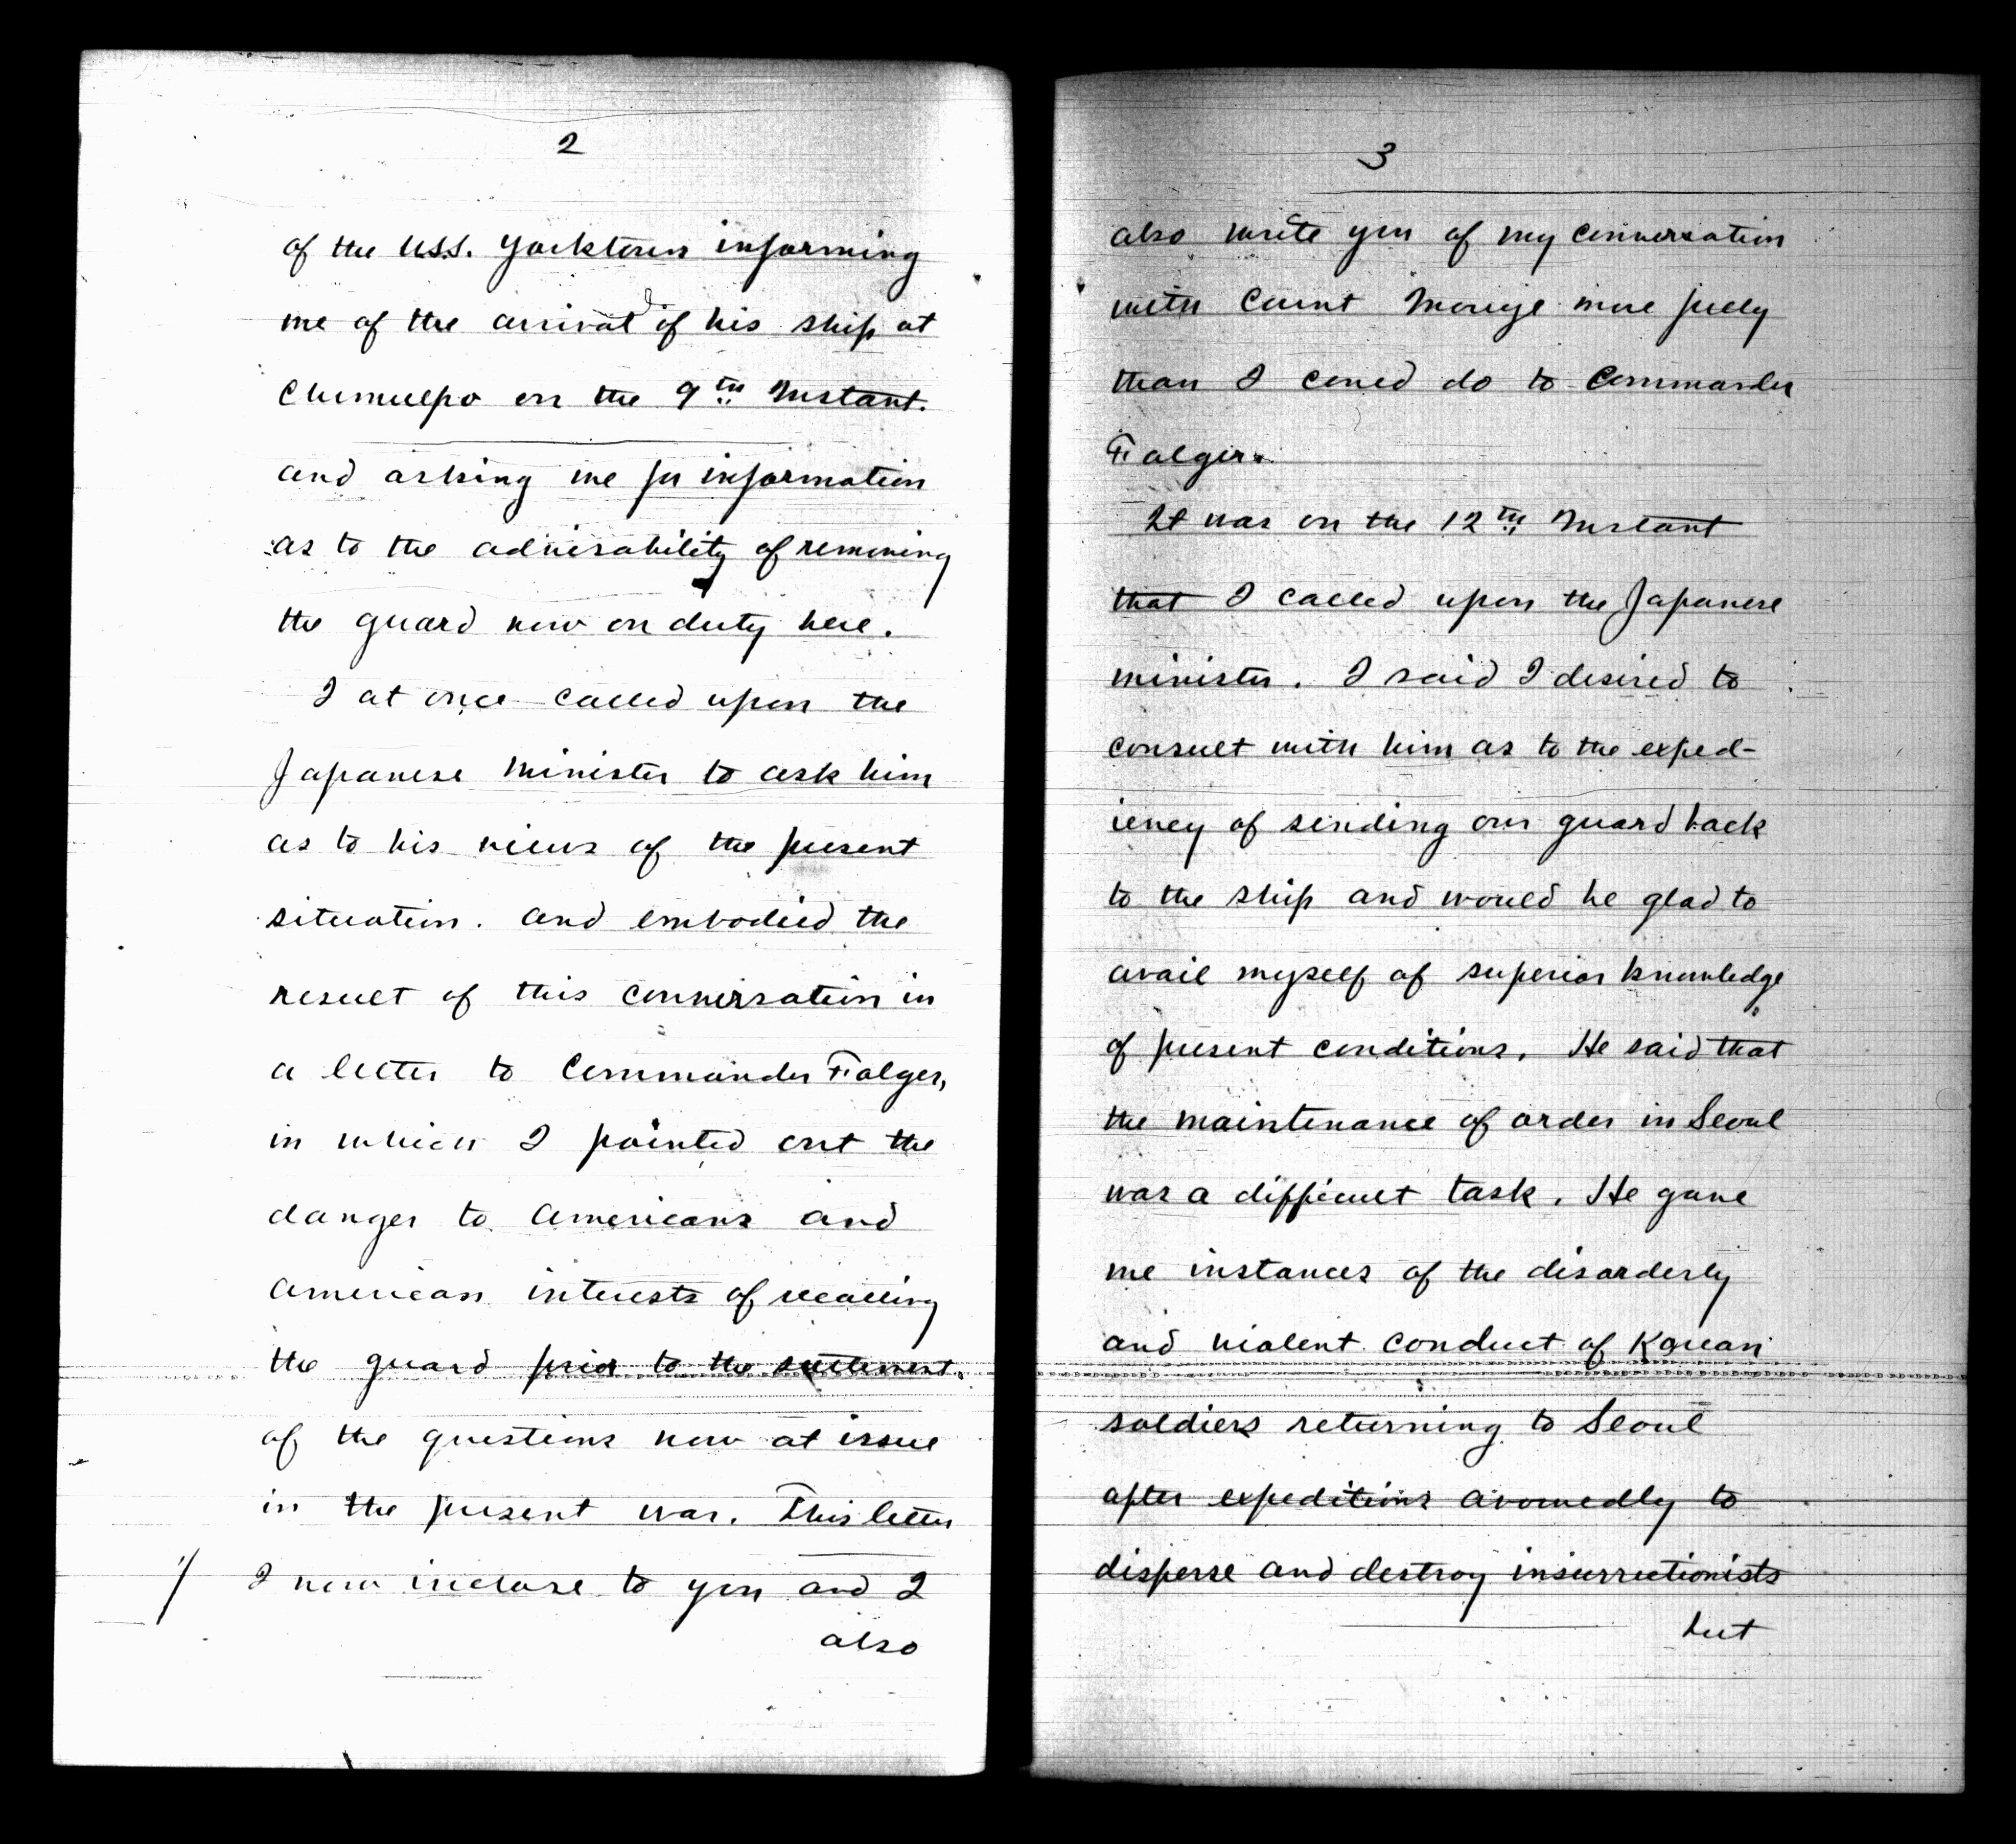 2
of the U.S.S. Yorktown informing
me of the arrival of his ship at
Chemulpo on the 9th Instant.
and asking me for information
as to the advisability of removing
the guard now on duty here.
I at once called upon the
Japanese Minister to ask him
as to his views of the present
situation. and embodied the
result of this conversation in
a letter to Commander Folger,
in which I pointed out the
danger to Americans and
American interests of recalling
the guard prior to the settlement.
of the questions now at issue
in the present war. This letter
1/ I now inclose to you and I
also
3
also write you of my conversation
with Count Mouye more fully
than I could do to Commander
Folger.
It was on the 12th Instant
that I called upon the Japanese
minister. I said I desired to
consult with him as to the exped-
iency of sending our guard back
to the ship and would be glad to
avail myself of superior knowledge
of present conditions. He said that
the maintenance of order in Seoul
was a difficult task. He gave
me instances of the disorderly
and violent conduct of Korean
soldiers returning to Seoul
after expeditions avowedly to
disperse and destroy insurrectionists
but